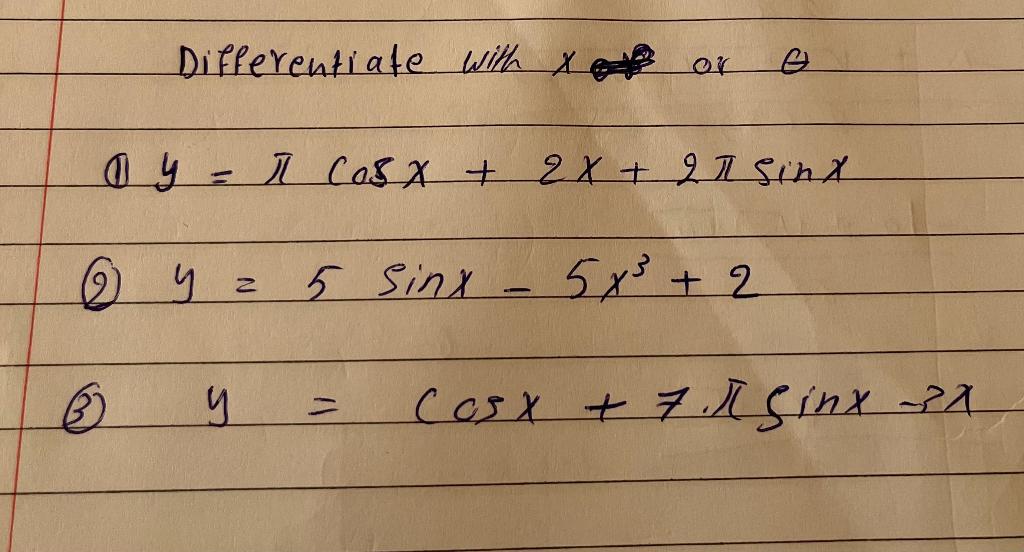 Differentiate with x or θ
① y = π cosx + 2x + 2π sinx
② y = 5 sinx - 5x³ + 2
③ y = cosx + 7.π sinx -3x